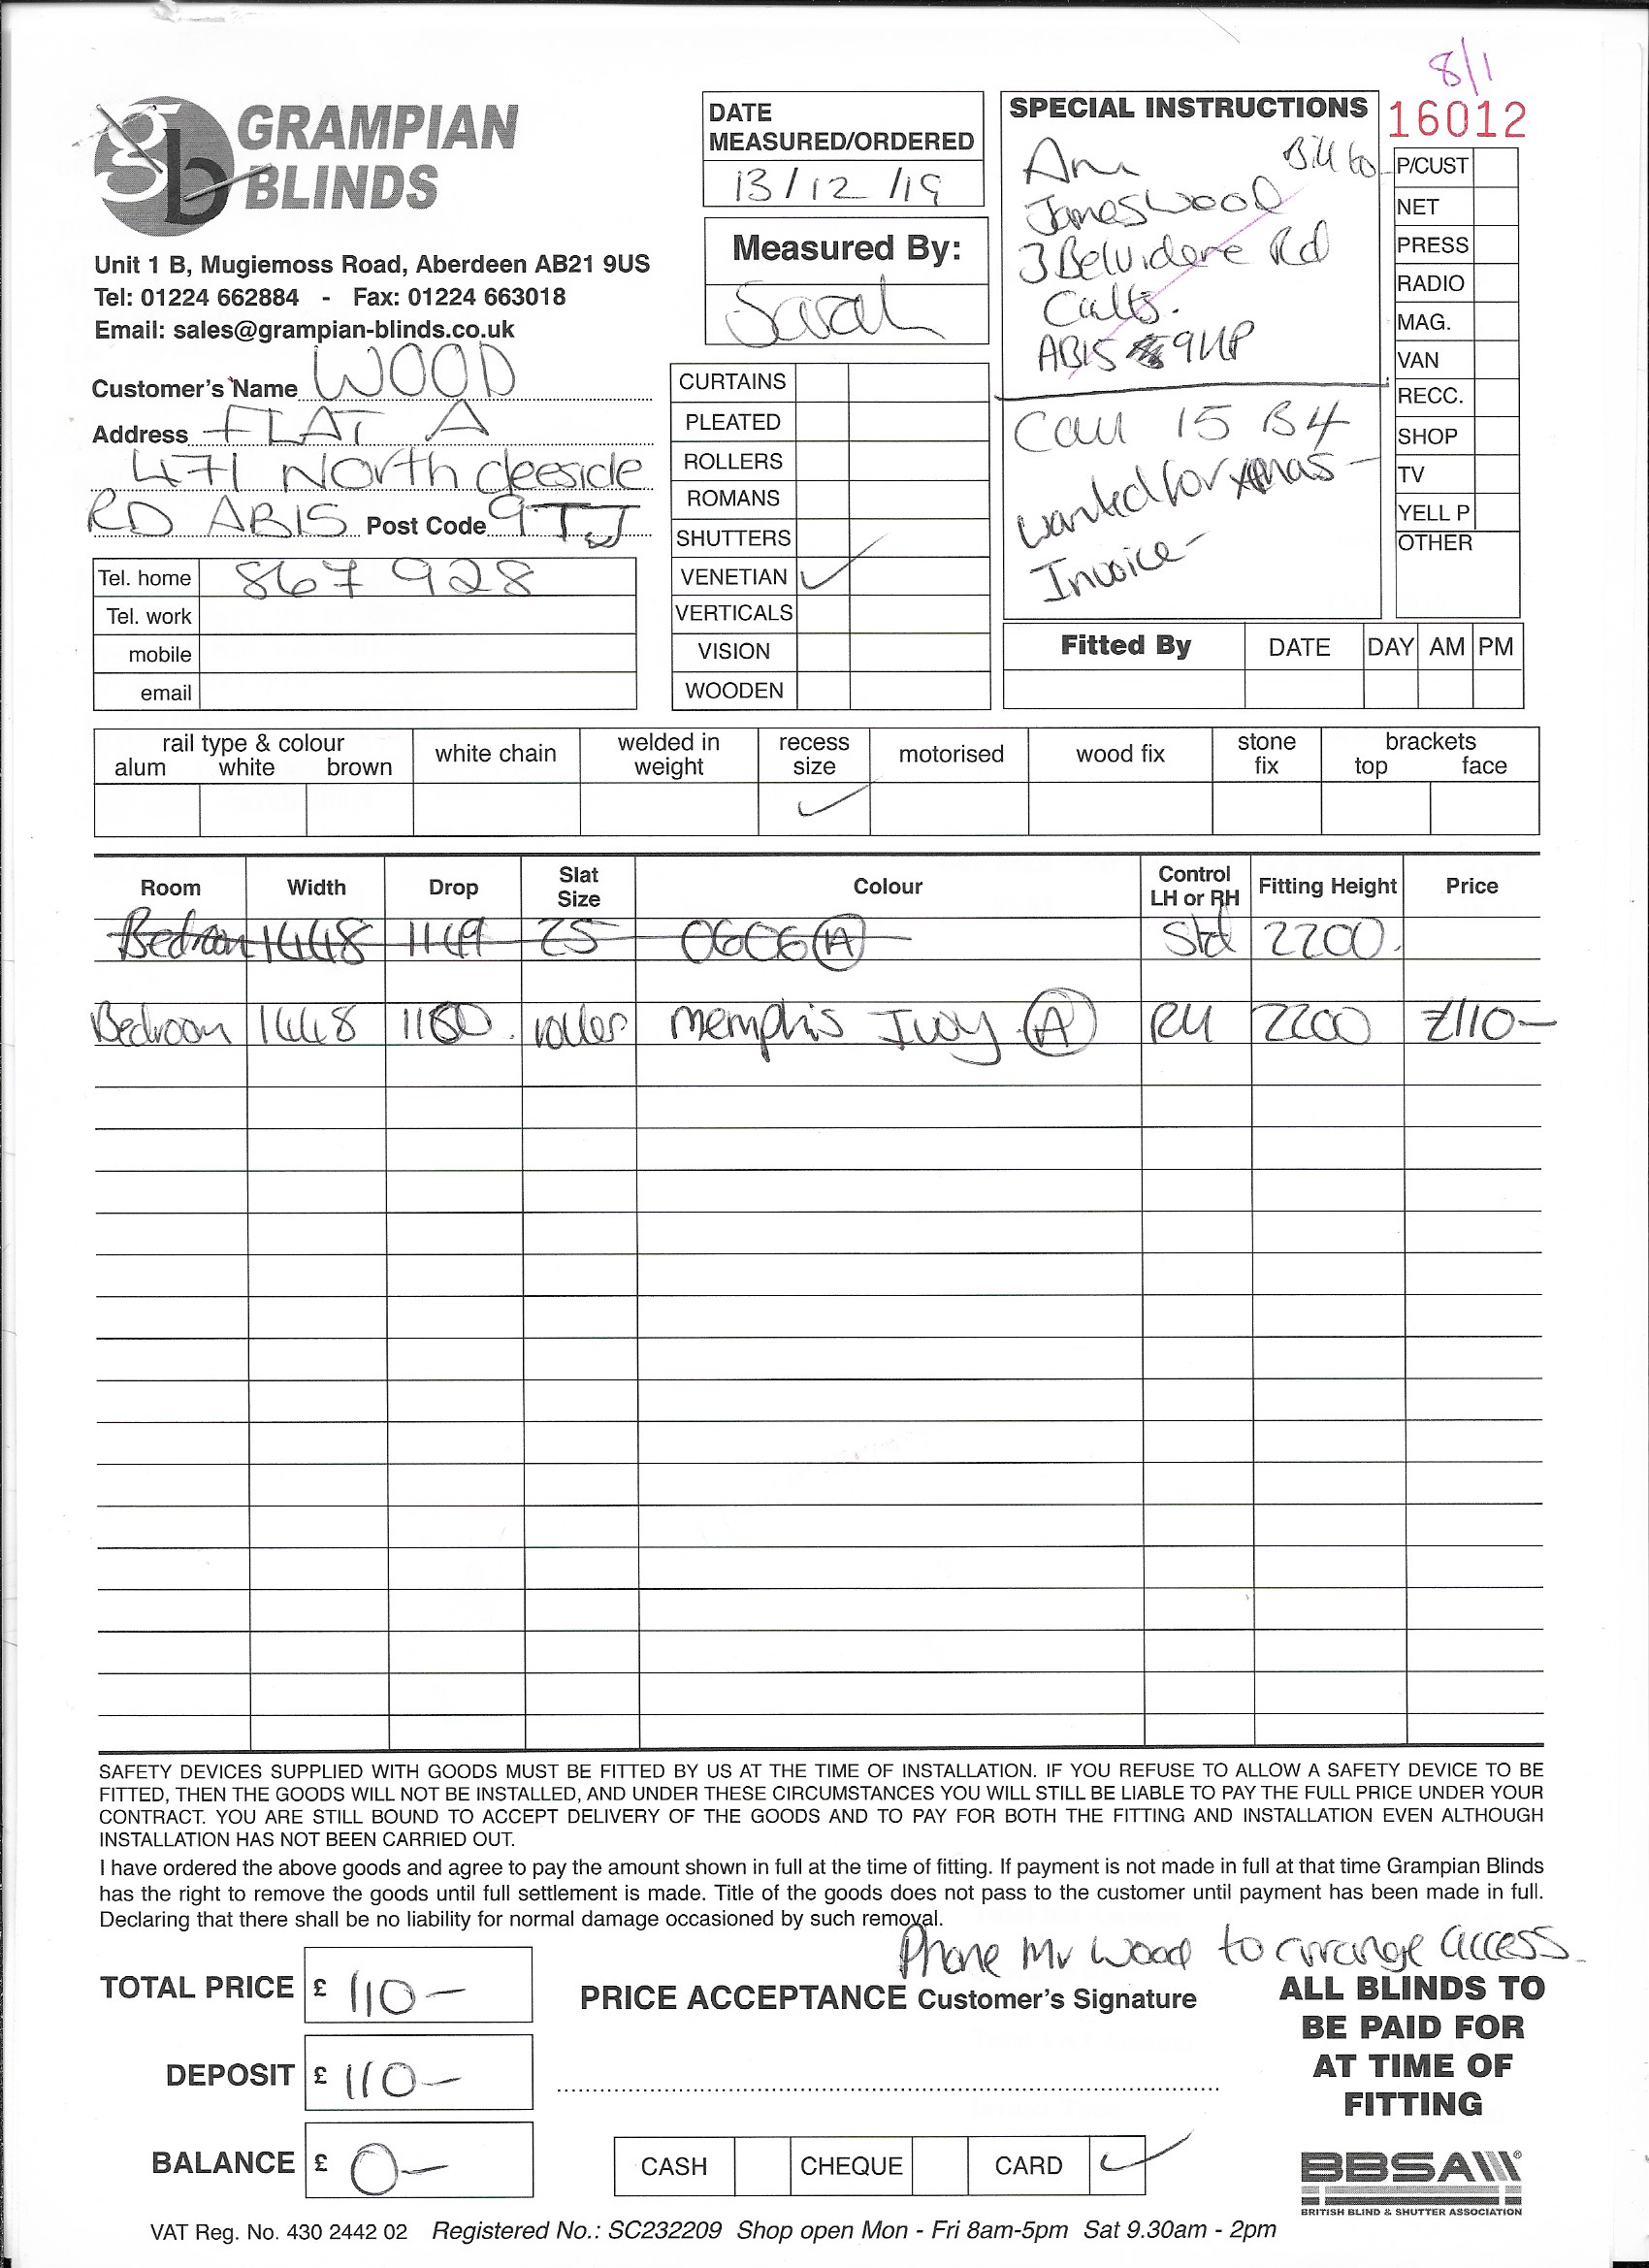 8/1
16012
GRAMPIAN
BLINDS
Unit 1 B, Mugiemoss Road, Aberdeen AB21 9US
Tel: 01224 662884 - Fax: 01224 663018
Email: sales@grampian-blinds.co.uk
Customer's Name WOOD
Address FLAT A
471 North deeside
RD AB15 Post Code 9TJ
Tel. home 867 928
Tel. work
mobile
email
DATE
MEASURED/ORDERED
13/12/19
Measured By:
Sarah
CURTAINS
PLEATED
ROLLERS
ROMANS
SHUTTERS
VENETIAN ✓
VERTICALS
VISION
WOODEN
SPECIAL INSTRUCTIONS
Bill to
James Wood
3 Belvidere Rd
Cults.
AB15 9UP
Call 15 B4
wanted for xmas -
Invoice -
P/CUST
NET
PRESS
RADIO
MAG.
VAN
RECC.
SHOP
TV
YELL P
OTHER
Fitted By DATE DAY AM PM
rail type & colour
alum white brown
white chain
welded in
weight
recess
size
✓
motorised
wood fix
stone
fix
brackets
top face
Room Width Drop Slat Size Colour Control LH or RH Fitting Height Price
Bedroom 1448 1149 25 0606 A Std 2200.
Bedroom 1448 1180. roller memphis Ivory A RH 2200 £110-
SAFETY DEVICES SUPPLIED WITH GOODS MUST BE FITTED BY US AT THE TIME OF INSTALLATION. IF YOU REFUSE TO ALLOW A SAFETY DEVICE TO BE
FITTED, THEN THE GOODS WILL NOT BE INSTALLED, AND UNDER THESE CIRCUMSTANCES YOU WILL STILL BE LIABLE TO PAY THE FULL PRICE UNDER YOUR
CONTRACT. YOU ARE STILL BOUND TO ACCEPT DELIVERY OF THE GOODS AND TO PAY FOR BOTH THE FITTING AND INSTALLATION EVEN ALTHOUGH
INSTALLATION HAS NOT BEEN CARRIED OUT.
I have ordered the above goods and agree to pay the amount shown in full at the time of fitting. If payment is not made in full at that time Grampian Blinds
has the right to remove the goods until full settlement is made. Title of the goods does not pass to the customer until payment has been made in full.
Declaring that there shall be no liability for normal damage occasioned by such removal.
Phone Mr Wood to arrange access
TOTAL PRICE £ 110-
DEPOSIT £ 110-
BALANCE £ 0-
PRICE ACCEPTANCE Customer's Signature
CASH CHEQUE CARD ✓
ALL BLINDS TO
BE PAID FOR
AT TIME OF
FITTING
BBSA
BRITISH BLIND & SHUTTER ASSOCIATION
VAT Reg. No. 430 2442 02 Registered No.: SC232209 Shop open Mon - Fri 8am-5pm Sat 9.30am - 2pm